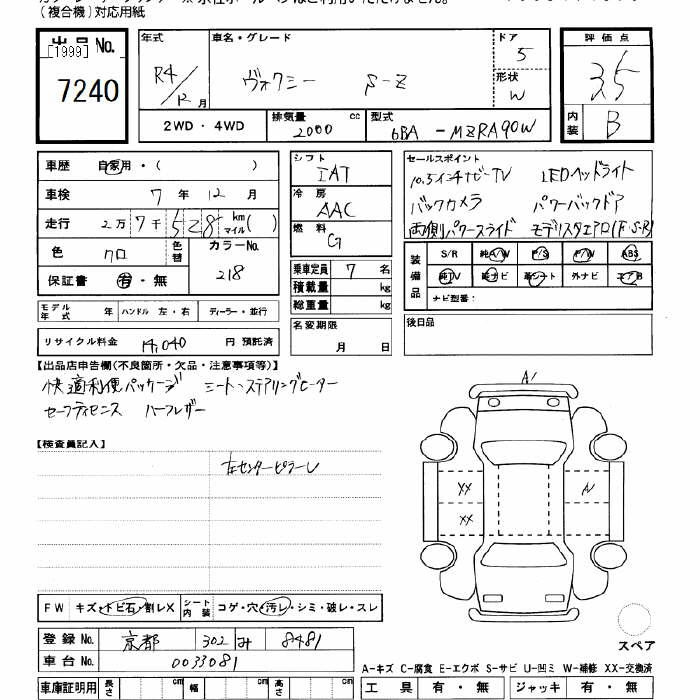 (複合機)対応用紙
出品No.
[1999]
7240
年式 車名・グレード ドア 評価点
R4/12月 ヴォクシー S-Z 5 3.5
形状 W
2WD・4WD 排気量 2000 cc 型式 6BA-MZRA90W 内装 B
車歴 自家用・( ) シフト IAT セールスポイント
車検 7年12月 冷房 AAC 10.5インチナビ・TV LEDヘッドライト
走行 2万7千528 km マイル( ) 燃料 G バックカメラ パワーバックドア
両側パワースライド モデリスタエアロ(F・S・R)
色 クロ 色替 カラーNo. 218
保証書 有・無
乗車定員 7名
積載量 kg
総重量 kg
装備品 S/R 純A/W P/S P/W ABS
純TV 純ナビ 革シート 外ナビ エアB
ナビ型番:
モデル年式 年 ハンドル 左・右 ディーラー・並行
名変期限 月 日
後日品
リサイクル料金 14,040 円 預託済
【出品店申告欄(不良箇所・欠品・注意事項等)】
快適利便パッケージ シート・ステアリングヒーター
セーフティセンス ハーフレザー
【検査員記入】
左センターピラーU
A1
XX
A1
XX
FW キズ・トビ石・割レX シート内装 コゲ・穴・汚レ・シミ・破レ・スレ
スペア
登録No. 京都 302 み 8481
車台No. 0033081
A-キズ C-腐食 E-エクボ S-サビ U-凹ミ W-補修 XX-交換済
車庫証明用 長さ cm 幅 cm 高さ cm
工具 有・無 ジャッキ 有・無